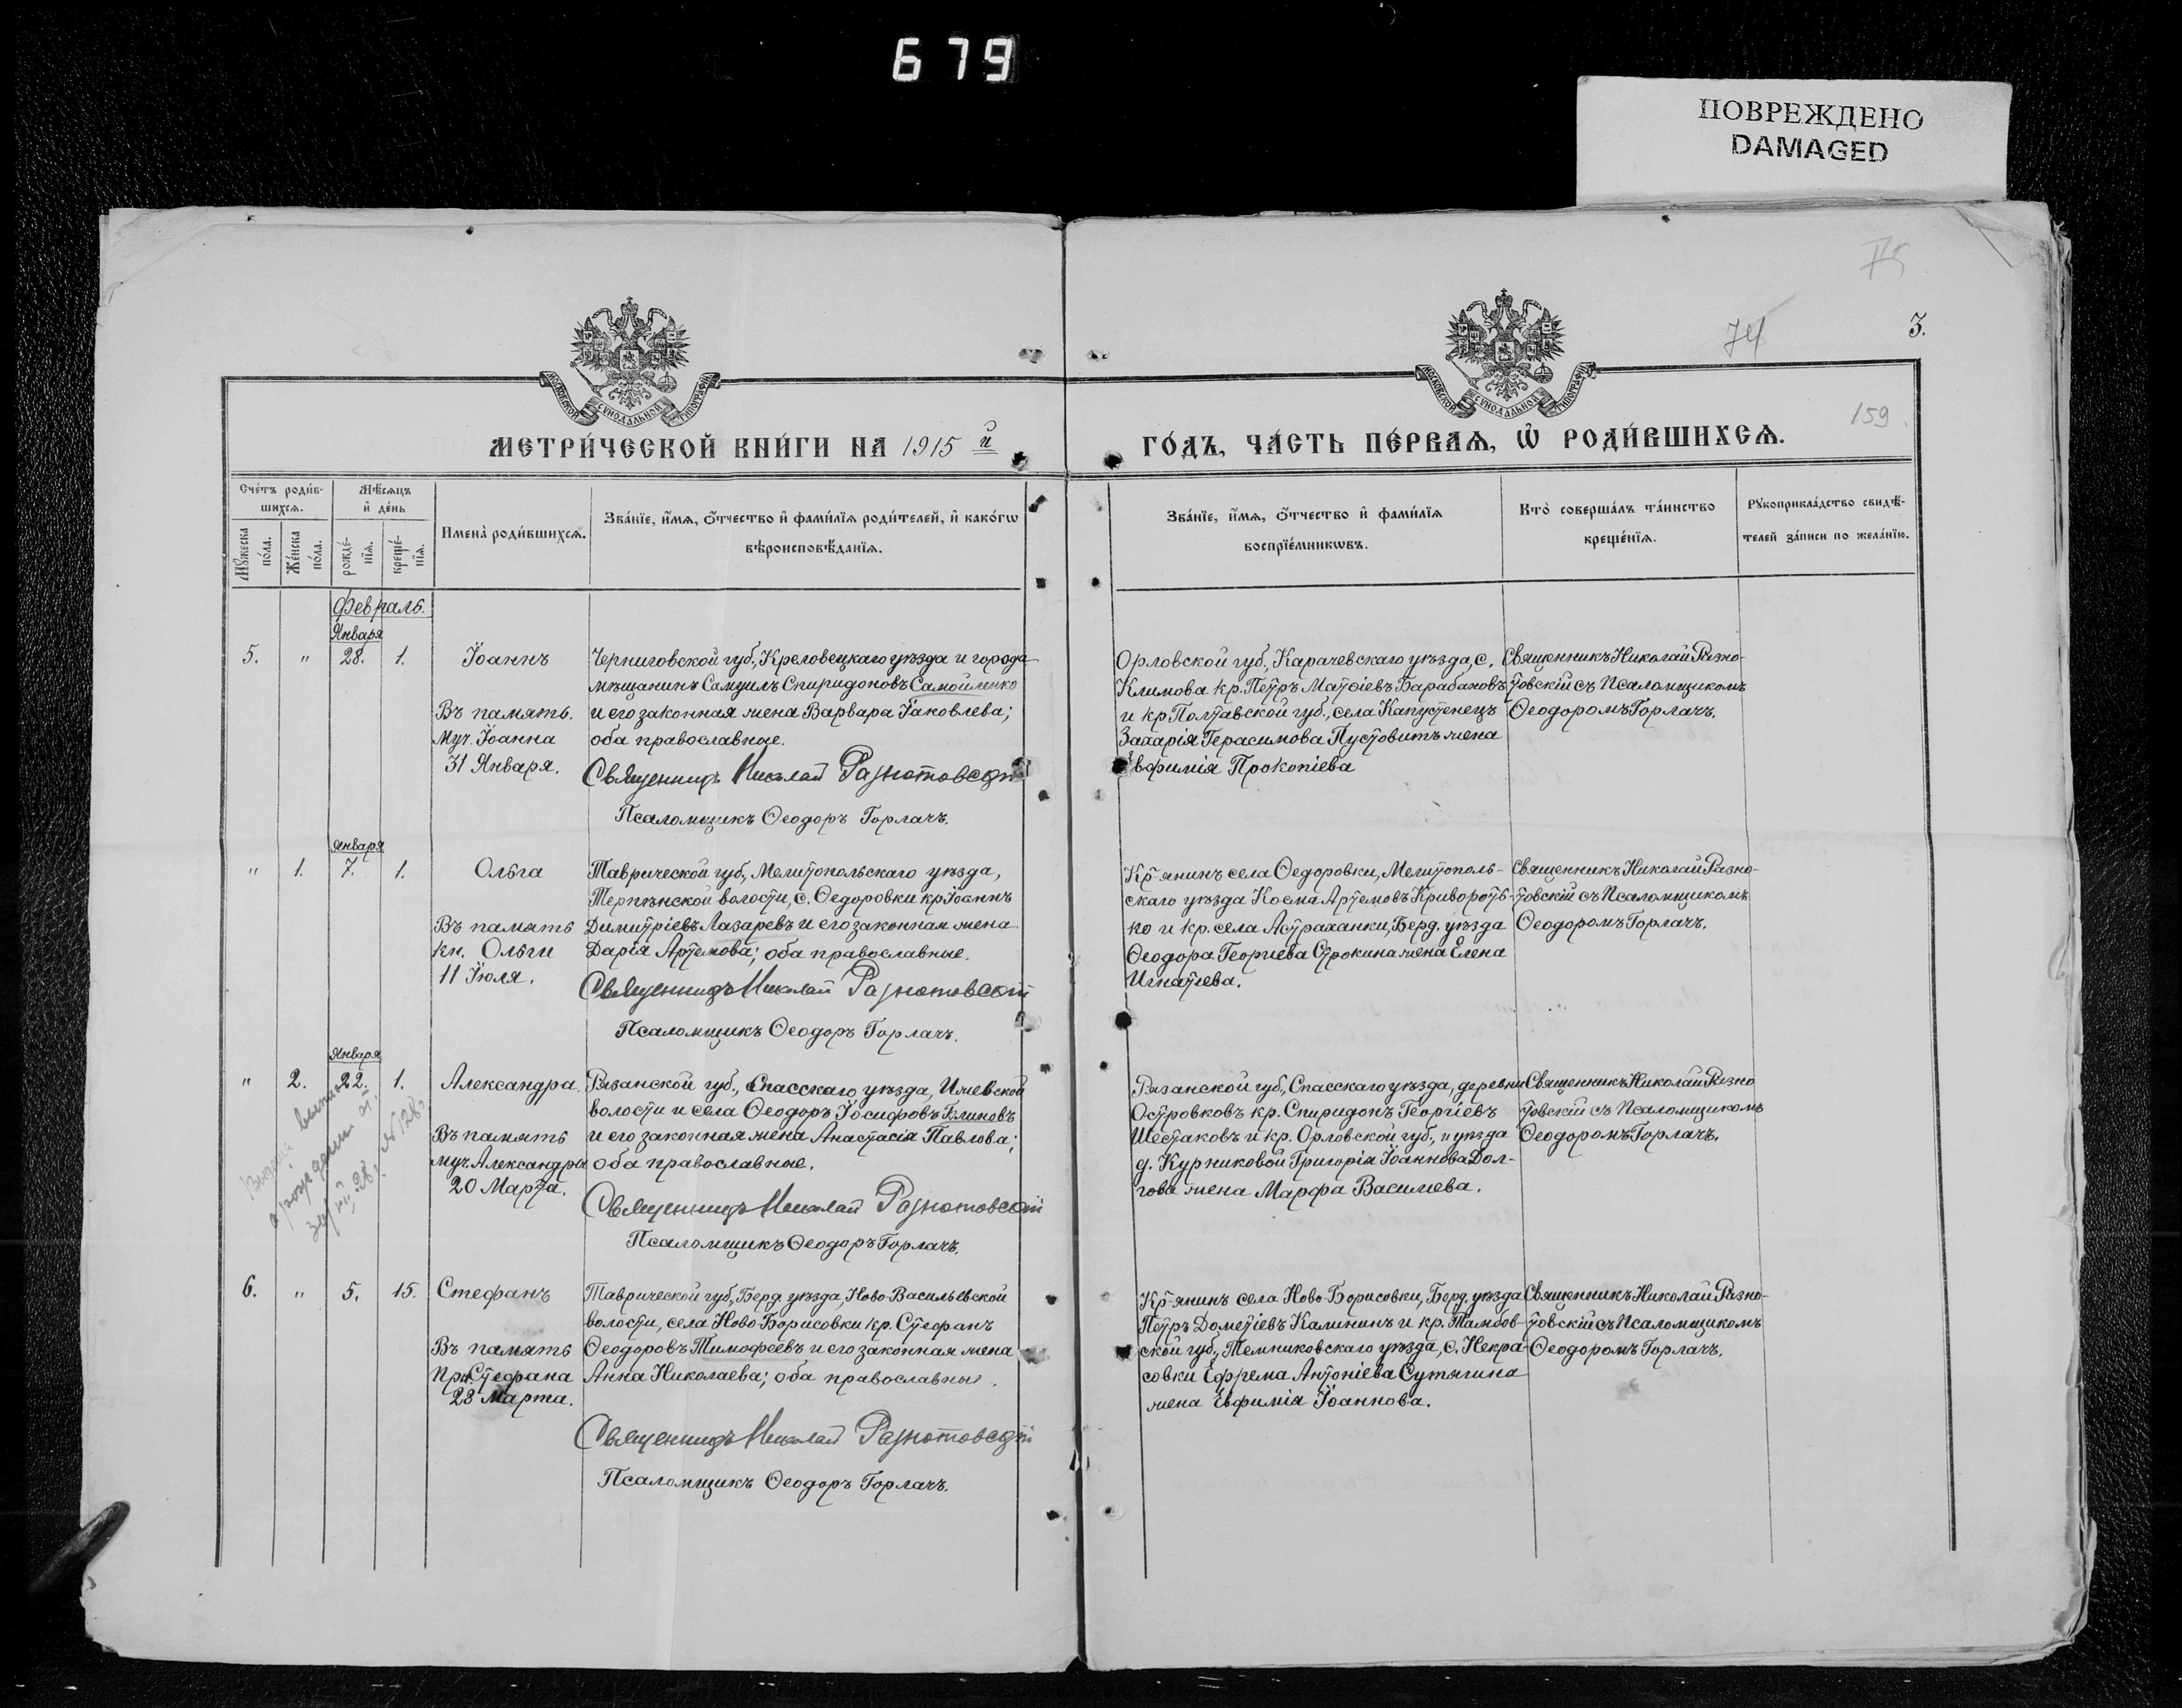 679
ПОВРЕЖДЕНО
DAMAGED
74
3.
159
МОСКОВСКОЙ СѴНОДАЛЬНОЙ ТИПОГРАФІИ
МОСКОВСКОЙ СѴНОДАЛЬНОЙ ТИПОГРАФІИ
МЕТРИ́ЧЕСКОЙ КНИ́ГИ НА 1915 й
ГО́ДЪ, ЧА́СТЬ ПЕ́РВАѦ, Ѡ҆ РОДИ́ВШИХСѦ.
Сче́тъ роди́в-
шихсѧ.
Мѣ́сѧцъ
и҆ де́нь
Мꙋ́жеска
по́ла.
Же́нска
по́ла.
рожде́-
нїѧ.
креще́-
нїѧ.
Имена̀ роди́вшихсѧ.
Зва́нїе, и҆́мѧ, ѻ҆́тчество и҆ фами́лїѧ роди́телей, и҆ како́гѡ
вѣроисповѣ́данїѧ.
Зва́нїе, и҆́мѧ, ѻ҆́тчество и҆ фами́лїѧ
воспрїе́мникѡвъ.
Кто̀ соверша́лъ та́инство
креще́нїѧ.
Рꙋкоприкла́дство свидѣ́-
телей за́писи по жела́нїю.
Февраль.
Января
5. " 28. 1. Іоаннъ
Въ память.
Муч. Іоанна
31 Января.
Черниговской губ., Креловецкаго уѣзда и города
мѣщанинъ Самуилъ Спиридоновъ Самойленко
и его законная жена Варвара Іаковлева;
оба православные.
Священникъ Николай Разнотовскій
Псаломщикъ Ѳеодоръ Горлачъ.
Орловской губ., Карачевскаго уѣзда, с.
Климова кр. Петръ Матѳіевъ Барабановъ
и кр. Полтавской губ., села Капустенецъ
Захарія Герасимова Пустовитъ жена
Евфимія Прокопіева
Священникъ Николай Разно-
товскій съ Псаломщикомъ
Ѳеодоромъ Горлачъ.
Января
" 1. 7. 1. Ольга
Въ память
кн. Ольги
11 Іюля.
Таврической губ., Мелитопольскаго уѣзда,
Терпѣнской волости, с. Ѳедоровки кр Іоаннъ
Димитріевъ Лазаревъ и его законная жена
Дарія Артемова; оба православные.
Священникъ Николай Разнотовскій
Псаломщикъ Ѳеодоръ Горлачъ.
Кр-янинъ села Ѳедоровки, Мелитополь-
скаго уѣзда Косма Артемовъ Криворотъ-
ко и кр. села Астраханки, Берд. уѣзда
Ѳеодора Георгіева Строкина жена Елена
Игнатіева.
Священникъ Николай Разно-
товскій съ Псаломщикомъ
Ѳеодоромъ Горлачъ.
Января
" 2. 22. 1. Александра
Въ память
муч. Александры
20 Марта.
Рязанской губ., Спасскаго уѣзда, Ижевской
волости и села Ѳеодоръ Іосифовъ Блиновъ
и его законная жена Анастасія Павлова;
оба православные.
Священникъ Николай Разнотовскій
Псаломщикъ Ѳеодоръ Горлачъ.
Рязанской губ., Спасскаго уѣзда, деревни
Островковъ кр. Спиридонъ Георгіевъ
Шестаковъ и кр. Орловской губ., и уѣзда
д. Курниковой Григорія Іоаннова Дол-
гова жена Марфа Василиева.
Священникъ Николай Разно
товскій съ Псаломщикомъ
Ѳеодоромъ Горлачъ.
6. " 5. 15. Стефанъ
Въ память
Прп. Стефана
28 Марта.
Таврической губ., Берд. уѣзда, Ново-Васильевской
волости, села Ново-Борисовки кр. Стефанъ
Ѳеодоровъ Тимофеевъ и его законная жена
Анна Николаева; оба православные.
Священникъ Николай Разнотовскій
Псаломщикъ Ѳеодоръ Горлачъ.
Кр-янинъ села Ново-Борисовки, Берд. уѣзда
Петръ Дометіевъ Калининъ и кр. Тамбов-
ской губ., Темниковскаго уѣзда, с. Некра-
совки Ефрема Антоніева Сутягина
жена Евфимія Іоаннова.
Священникъ Николай Разно-
товскій съ Псаломщикомъ
Ѳеодоромъ Горлачъ.